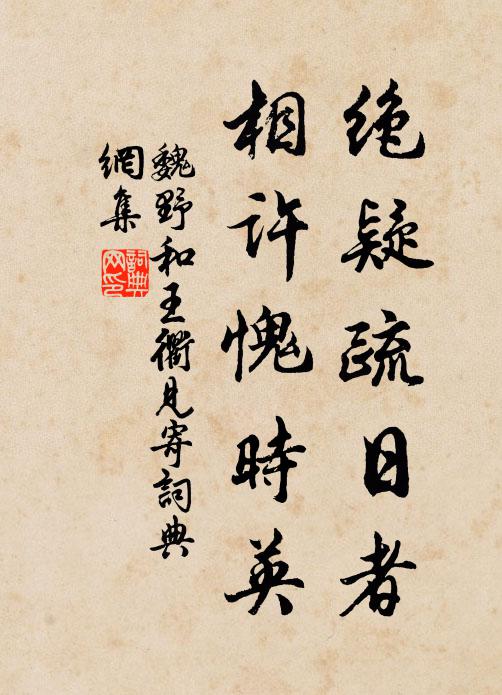 絶疑疏日者
相許愧時英
魏野和王衢見寄詞典
網集
詞典
网印